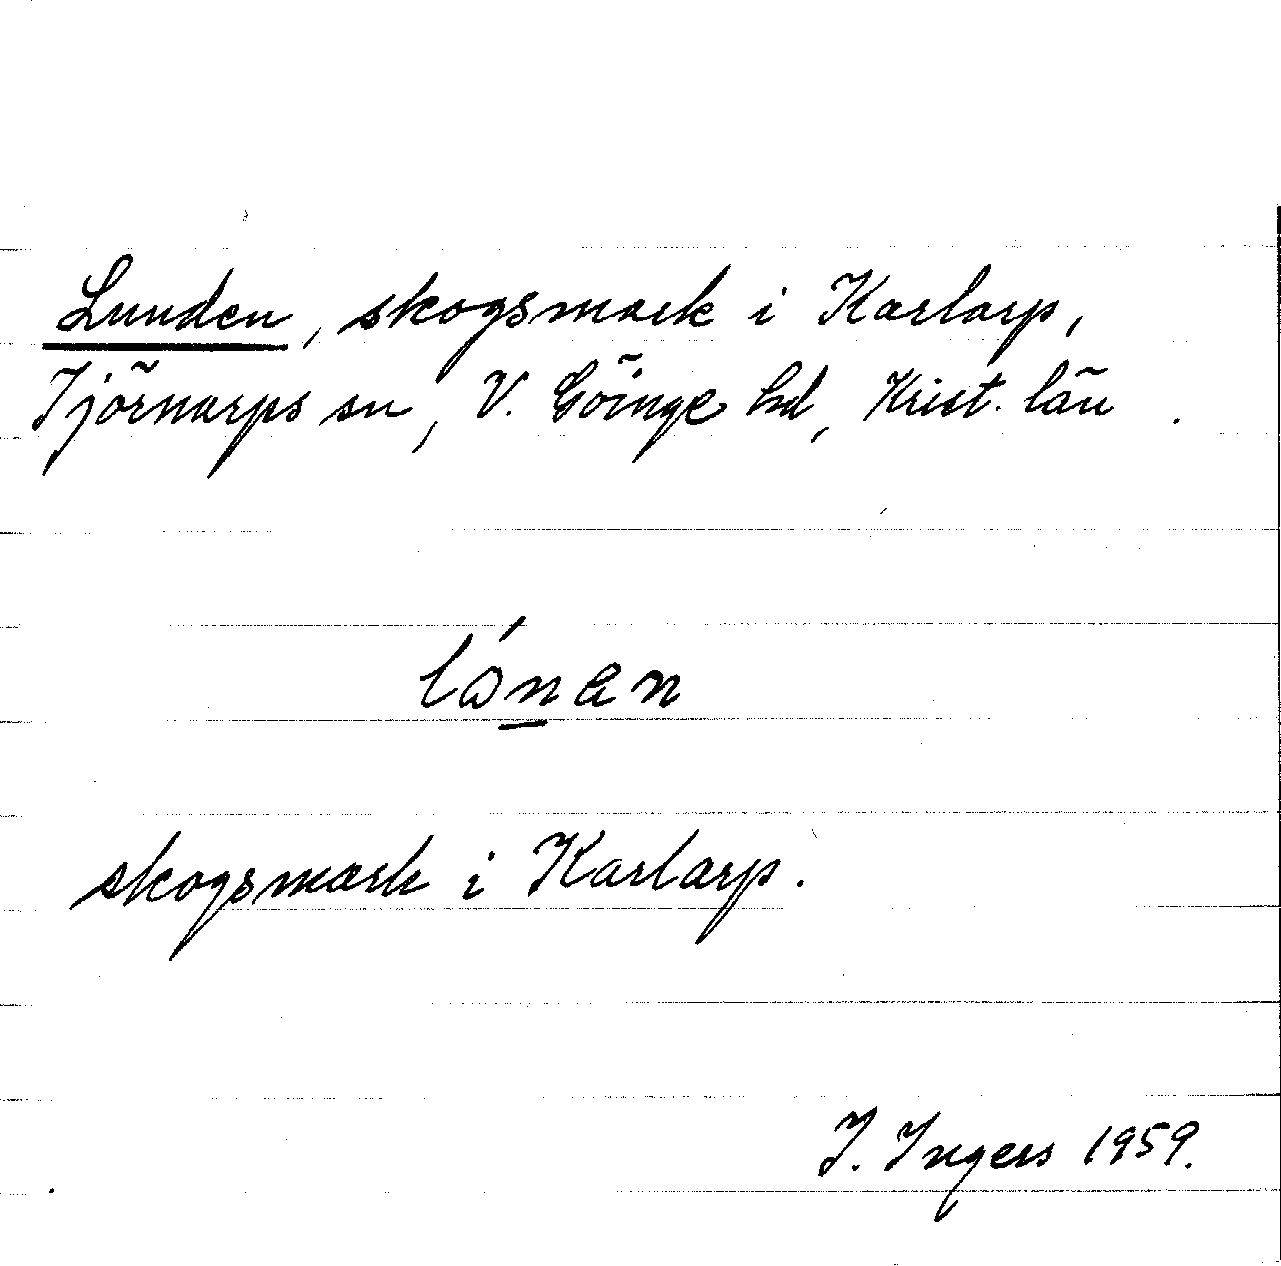 Lunden, skogsmark i Karlarp,
Tjörnarps sn, V. Göinge hd, Krist. län.
lónen
skogsmark i Karlarp.
I. Ingers 1959.